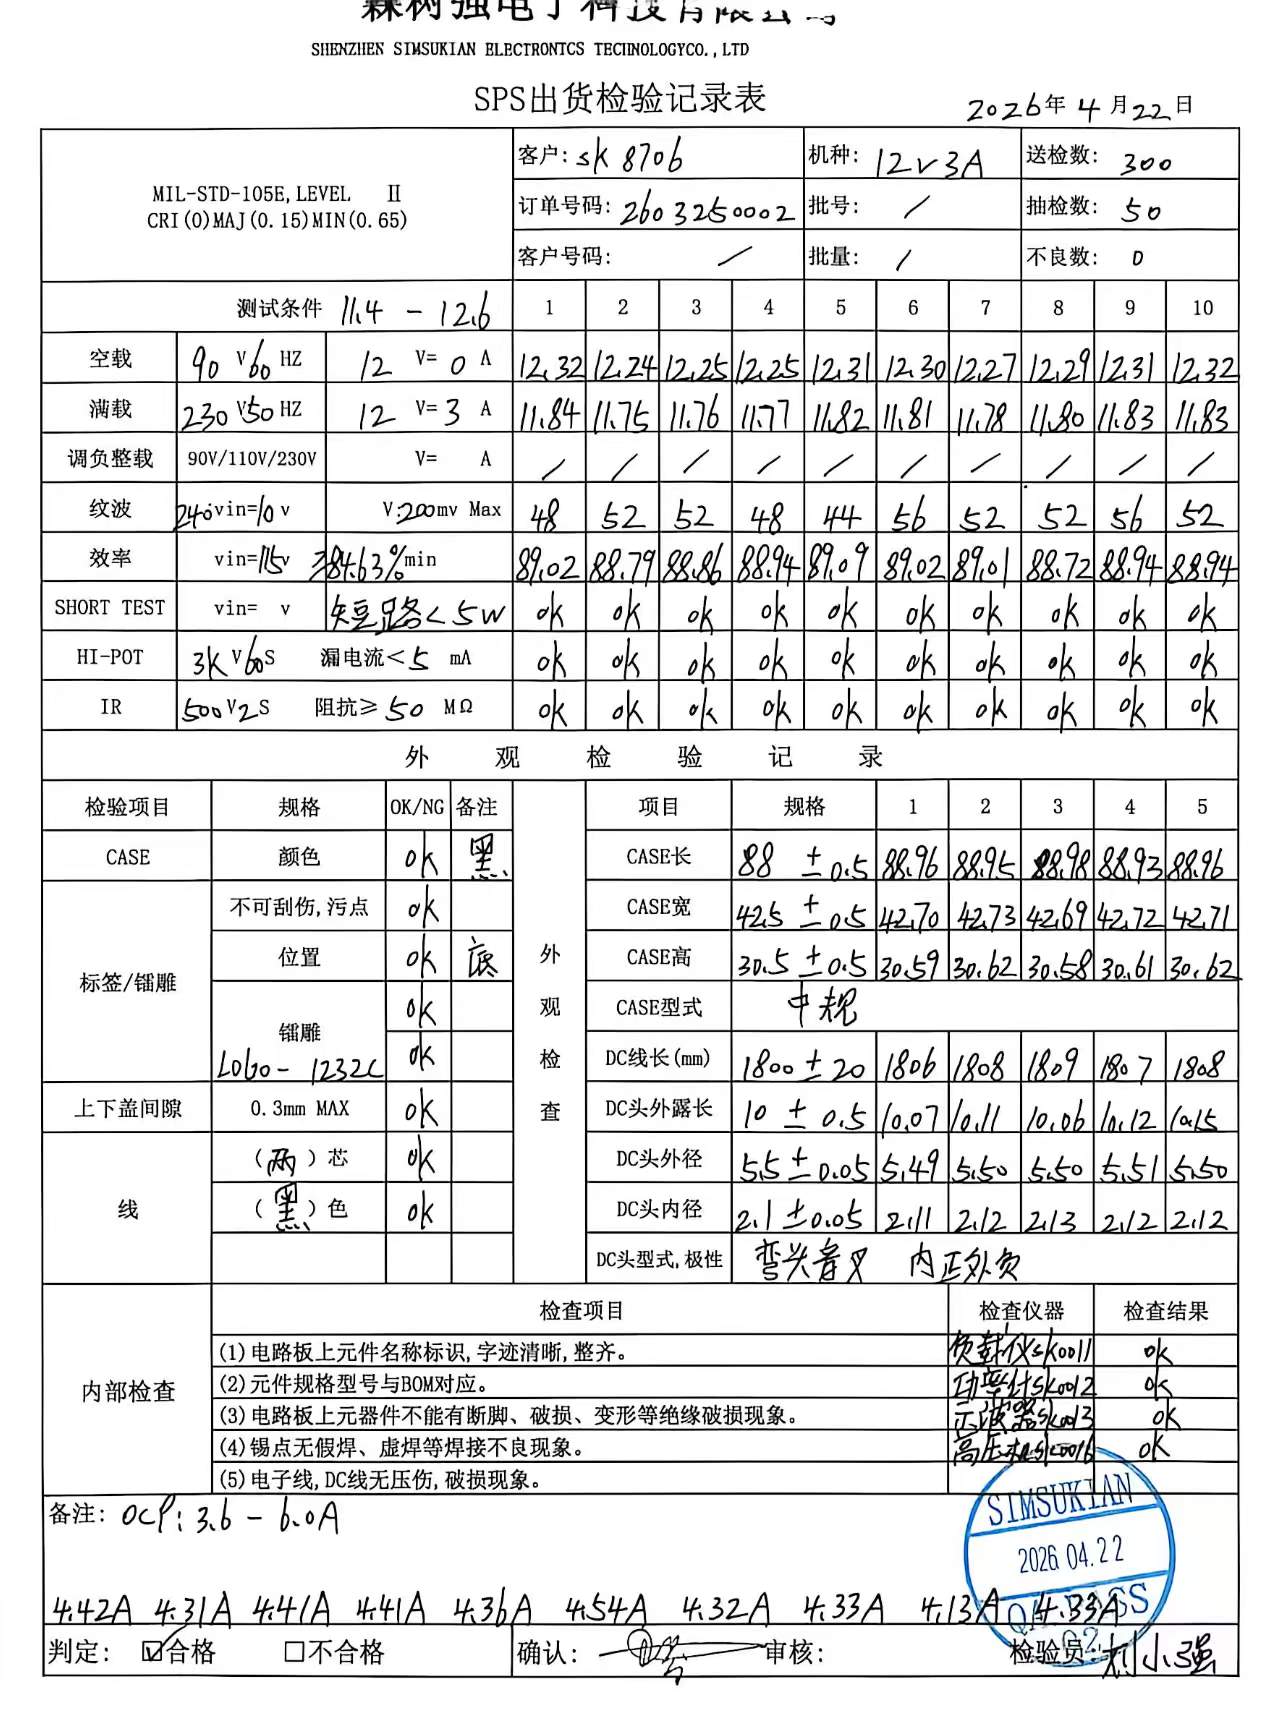 霖树强电子科技有限公司
SHENZHEN SIMSUKIAN ELECTRONTCS TECHNOLOGYCO.,LTD
SPS出货检验记录表 2026年4月22日
MIL-STD-105E,LEVEL Ⅱ
CRI(0)MAJ(0.15)MIN(0.65)
客户: SK8706 机种: 12V3A 送检数: 300
订单号码: 2603250002 批号: / 抽检数: 50
客户号码: / 批量: / 不良数: 0
测试条件 11.4 - 12.6 1 2 3 4 5 6 7 8 9 10
空载 90 V 60 HZ 12 V= 0 A 12.32 12.24 12.25 12.25 12.31 12.30 12.27 12.29 12.31 12.32
满载 230 V 50 HZ 12 V= 3 A 11.84 11.75 11.76 11.77 11.82 11.81 11.78 11.80 11.83 11.83
调负整载 90V/110V/230V V= A / / / / / / / / / /
纹波 240vin=10 v V:200mv Max 48 52 52 48 44 56 52 52 56 52
效率 vin=115v ≥84.63%min 89.02 88.79 88.86 88.94 89.09 89.02 89.01 88.72 88.94 88.94
SHORT TEST vin= v 短路<5W ok ok ok ok ok ok ok ok ok ok
HI-POT 3K V 60 S 漏电流<5 mA ok ok ok ok ok ok ok ok ok ok
IR 500 V 2 S 阻抗≥50 MΩ ok ok ok ok ok ok ok ok ok ok
外观检验记录
检验项目 规格 OK/NG 备注 项目 规格 1 2 3 4 5
CASE 颜色 ok 黑 CASE长 88 ±0.5 88.96 88.95 88.98 88.93 88.96
不可刮伤,污点 ok CASE宽 42.5 ±0.5 42.70 42.73 42.69 42.72 42.71
标签/镭雕 位置 ok 底 CASE高 30.5 ±0.5 30.59 30.62 30.58 30.61 30.62
外观检查
镭雕 ok CASE型式 中规
LOGO - 1232C ok DC线长(mm) 1800 ± 20 1806 1808 1809 1807 1808
上下盖间隙 0.3mm MAX ok DC头外露长 10 ± 0.5 10.07 10.11 10.06 10.12 10.15
线 (两)芯 ok DC头外径 5.5 ±0.05 5.49 5.50 5.50 5.51 5.50
(黑)色 ok DC头内径 2.1 ±0.05 2.11 2.12 2.13 2.12 2.12
DC头型式,极性 弯头音叉 内正外负
内部检查 检查项目 检查仪器 检查结果
(1)电路板上元件名称标识,字迹清晰,整齐。 负载仪SK0011 ok
(2)元件规格型号与BOM对应。 功率计SK0012 ok
(3)电路板上元器件不能有断脚、破损、变形等绝缘破损现象。 示波器SK0013 ok
(4)锡点无假焊、虚焊等焊接不良现象。 高压机SK0016 ok
(5)电子线,DC线无压伤,破损现象。
备注: OCP: 3.6 - 6.0A
SIMSUKIAN
2026.04.22
QA PASS
02
4.42A 4.31A 4.41A 4.41A 4.36A 4.54A 4.32A 4.33A 4.13A 4.33A
判定: ☑合格 □不合格 确认: 审核: 检验员: 刘小强